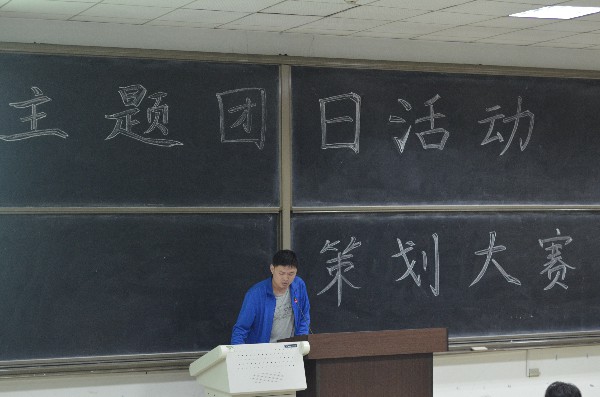 主题团日活动
策划大赛